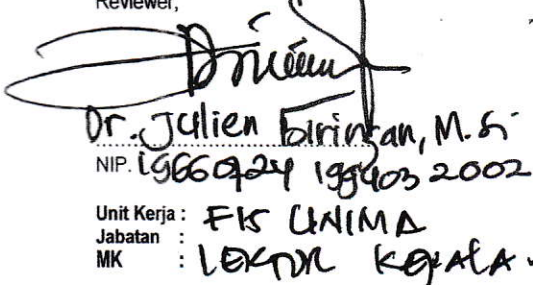 Reviewer,
Dr. Julien Biringan, M.Si
NIP. 19660724 199403 2002
Unit Kerja : FIS UNIMA
Jabatan :
MK : LEKTOR KEPALA.